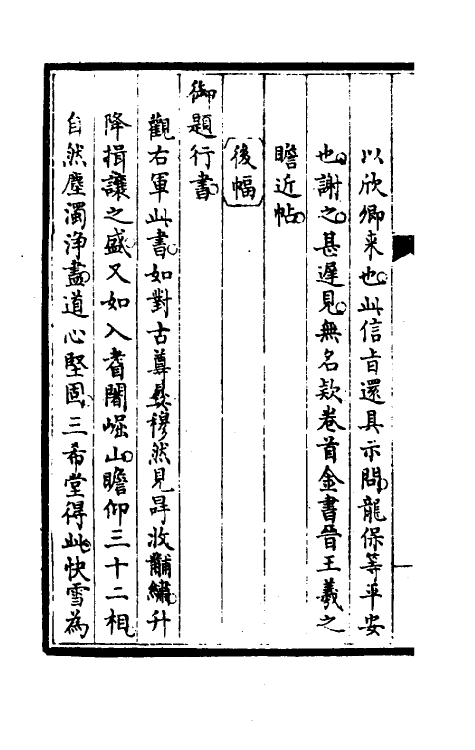 以欣卿来也此信旨還具示問龍保等平安
也謝之甚遲見無名款卷首金書晉王羲之
瞻近帖
後幅
御題行書
觀右軍此書如對古尊彝穆然見冔收黼繡升
降揖讓之盛又如入耆闍崛山瞻仰三十二相
自然塵濁淨盡道心堅固三希堂得此快雪為